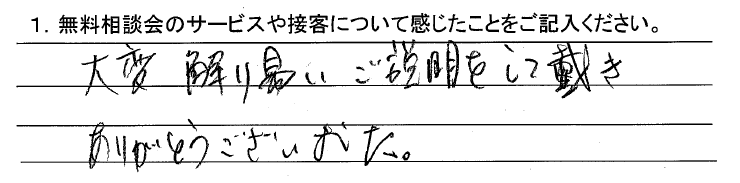 1．無料相談会のサービスや接客について感じたことをご記入ください。
大変 解り易い ご説明をして戴き
ありがとうございました。